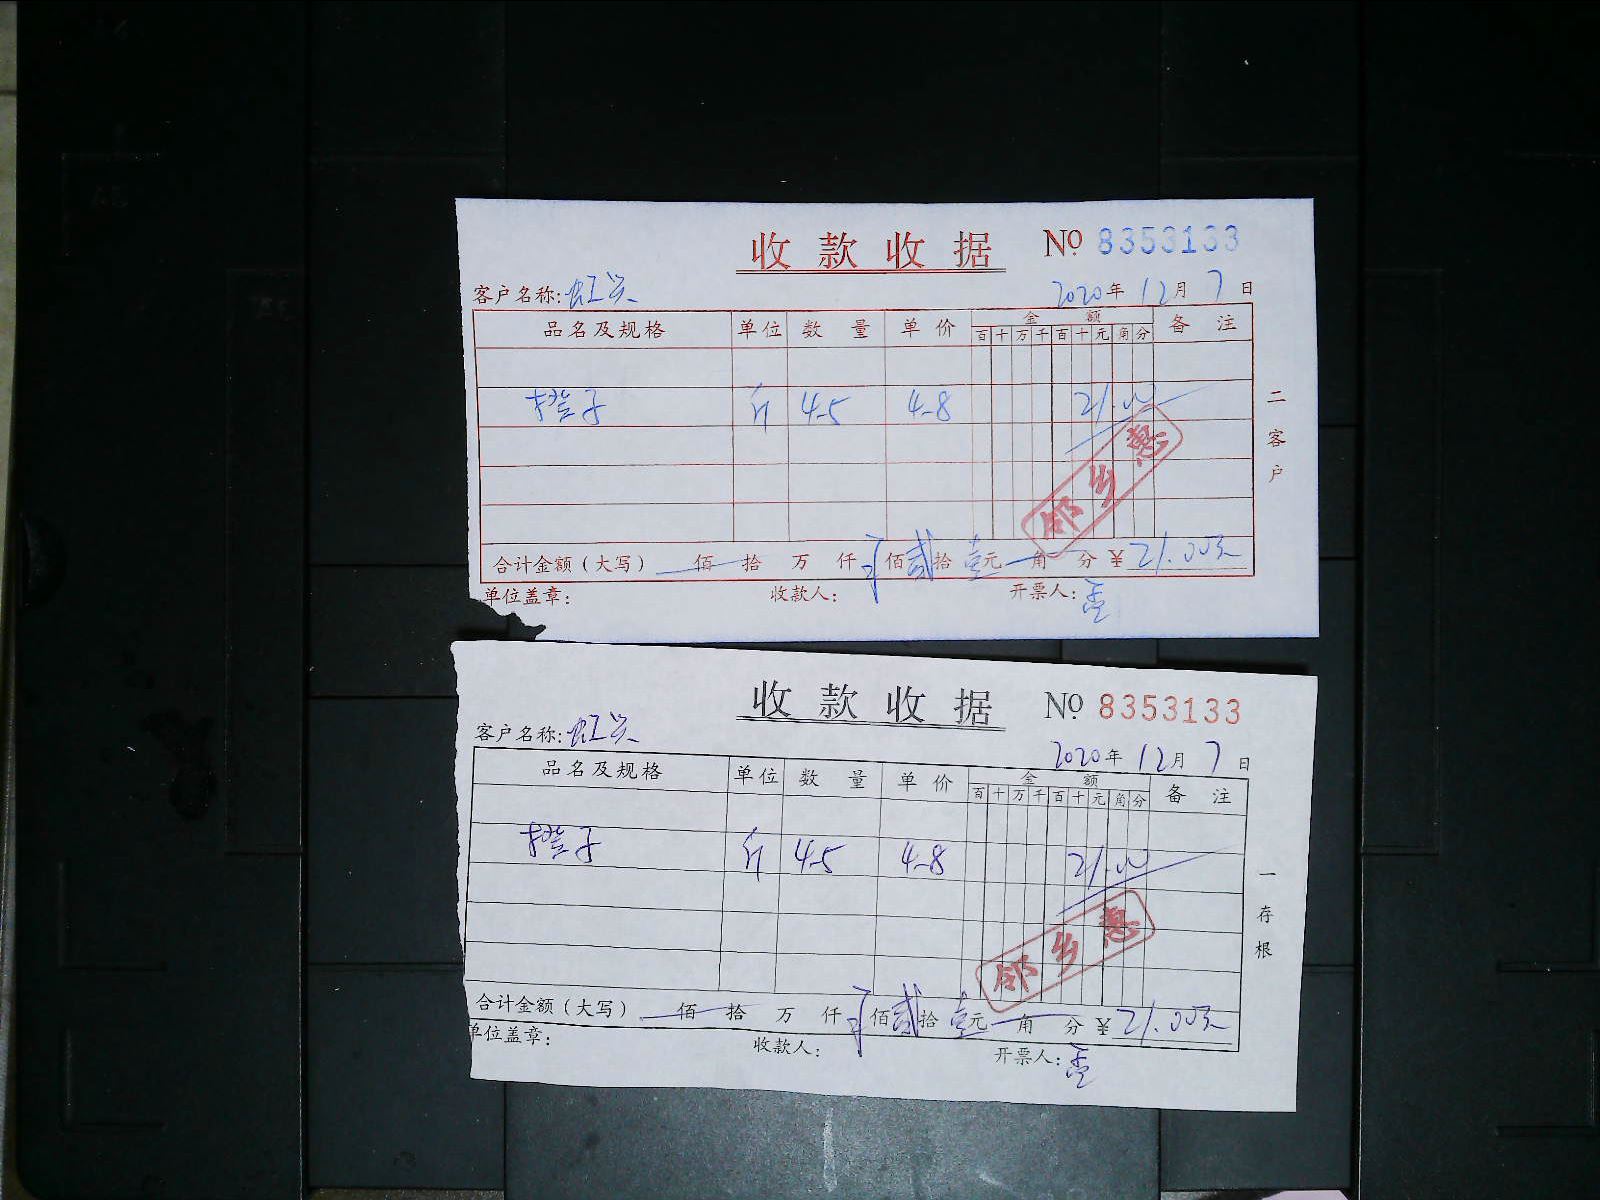 收款收据 № 8353133
客户名称: 虹兴 2020年12月7日
品名及规格 单位 数量 单价 金额 备注
百十万千百十元角分
橙子 斤 4.5 4.8 21.00
二客户
邻乡惠
合计金额（大写） 佰拾万仟 佰贰拾壹元 角 分 ¥21.00元
单位盖章: 收款人: 开票人: 孟
收款收据 № 8353133
客户名称: 虹兴
2020年12月7日
品名及规格 单位 数量 单价 金额 备注
百十万千百十元角分
橙子 斤 4.5 4.8 21.00
一存根
邻乡惠
合计金额（大写） 佰拾万仟 佰贰拾壹元 角 分 ¥21.00元
单位盖章: 收款人: 开票人: 孟